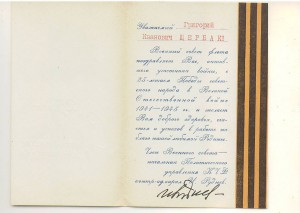 Уважаемый Григорий
Иванович
Военный совет флота
поздравляет Вас, активного
участника войны, с
25-летием Победы советского
народа в Великой
Отечественной войне
1941-1945 гг. и желает
Вам доброго здоровья, счастья
и успехов в работе на
благо нашей любимой Родины.
Член Военного совета —
начальник Политического
управления